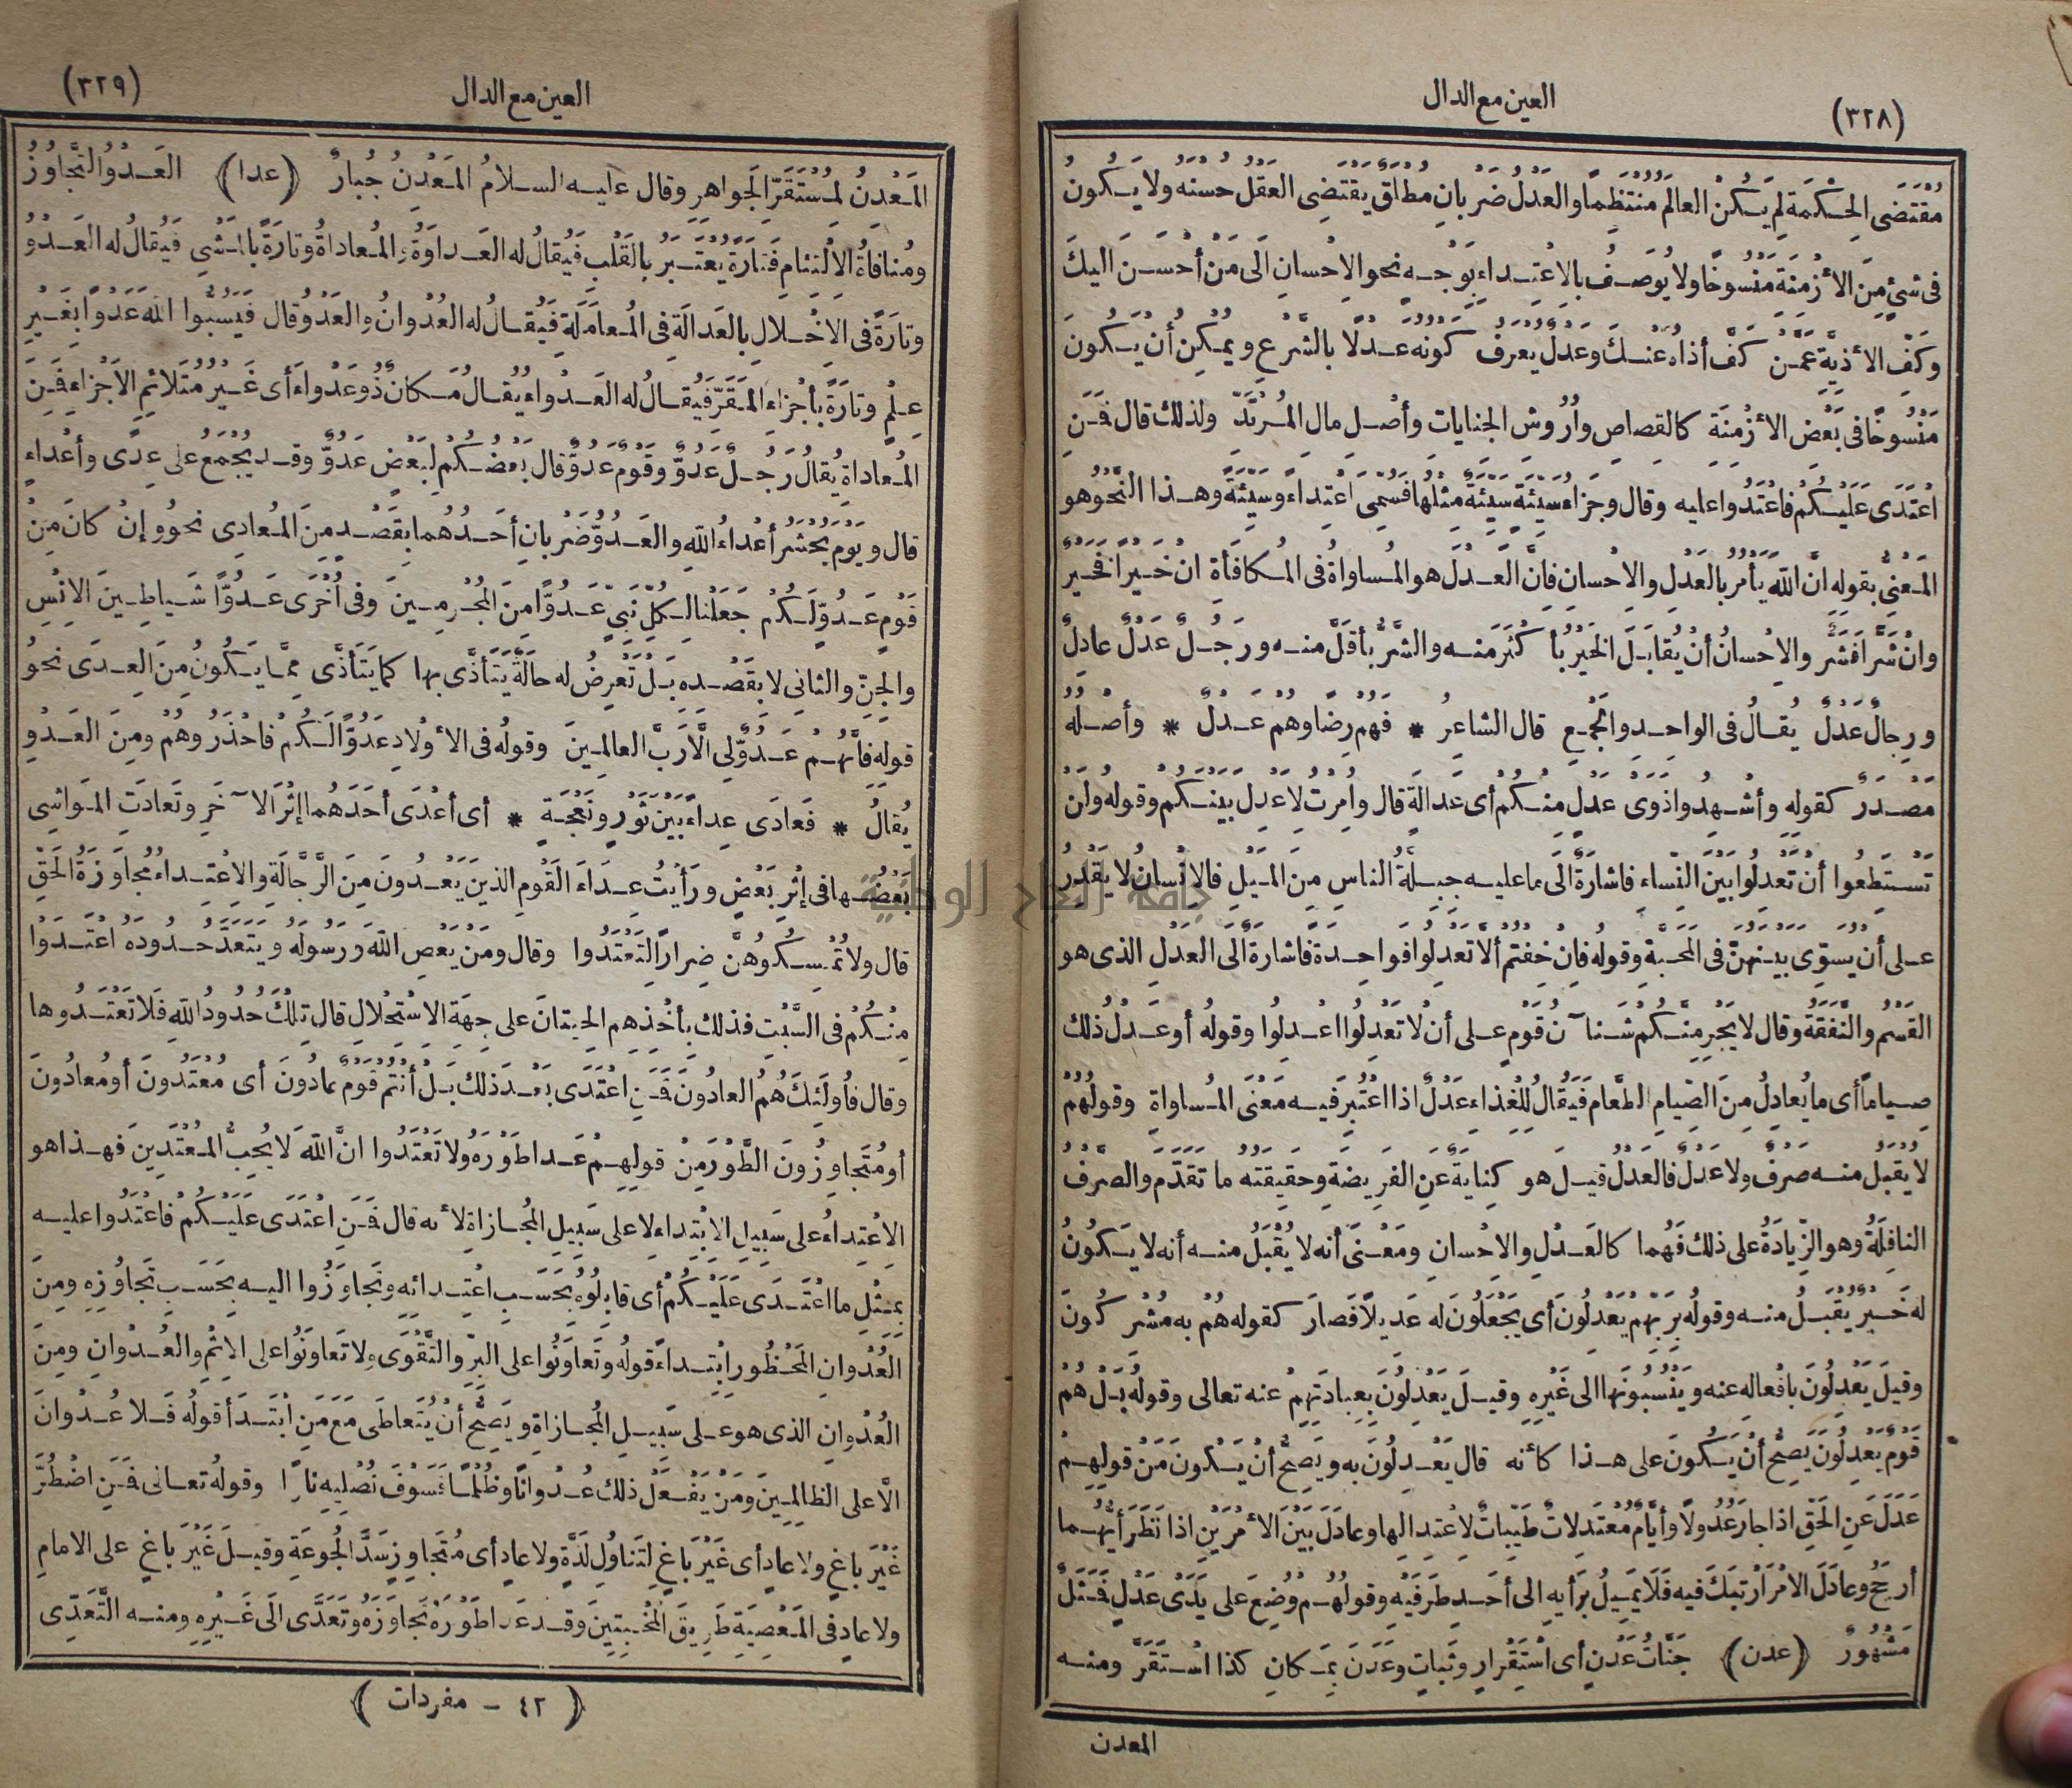 العين مع الدال
(٣٢٨)
مقتضى الحكمة لم يكن العالم منتظما والعدل ضربان مطلق يقتضى العقل حسنه ولا يكون
فى شئ من الأزمنة منسوخا ولا يوصف بالاعتداء بوجه نحو الاحسان الى من أحسن اليك
وكف الأذية عمن كف أذاه عنك وعدل يعرف كونه عدلا بالشرع ويمكن أن يكون
منسوخا فى بعض الأزمنة كالقصاص وأروش الجنايات وأصل مال المرتد ولذلك قال فمن
اعتدى عليكم فاعتدوا عليه وقال وجزاء سيئة سيئة مثلها فسمى اعتداء وسيئة وهذا النحو هو
المعنى بقوله ان الله يأمر بالعدل والاحسان فان العدل هو المساواة فى المكافأة ان خيرا فخير
وان شرا فشر والاحسان أن يقابل الخير بأكثر منه والشر بأقل منه ورجل عدل عادل
ورجال عدل يقال فى الواحد والجمع قال الشاعر * فهم رضا وهم عدل * وأصله
مصدر كقوله وأشهدوا ذوى عدل منكم أى عدالة قال وأمرت لأعدل بينكم وقوله ولن
تستطيعوا أن تعدلوا بين النساء فاشارة الى ما عليه جبلة الناس من الميل فالانسان لا يقدر
على أن يسوى بينهن فى المحبة وقوله فان خفتم ألا تعدلوا فواحدة فاشارة الى العدل الذى هو
القسم والنفقة وقال لا يجرمنكم شنآن قوم على أن لا تعدلوا اعدلوا وقوله أو عدل ذلك
صياما أى ما يعادل من الصيام الطعام فيقال للغذاء عدل اذا اعتبر فيه معنى المساواة وقولهم
لا يقبل منه صرف ولا عدل فالعدل قيل هو كناية عن الفريضة وحقيقته ما تقدم والصرف
النافلة وهو الزيادة على ذلك فهما كالعدل والاحسان ومعنى أنه لا يقبل منه أنه لا يكون
له خير يقبل منه وقوله بربهم يعدلون أى يجعلون له عديلا فصار كقوله هم به مشركون
وقيل يعدلون بأفعاله عنه وينسبونها الى غيره وقيل يعدلون بعبادتهم عنه تعالى وقوله بل هم
قوم يعدلون يصح أن يكون على هذا كأنه قال يعدلون به ويصح أن يكون من قولهم
عدل عن الحق اذا جار عدولا وأيام معتدلات طيبات لاعتدالها وعادل بين الأمرين اذا نظر أيهما
أرجح وعادل الأمر ارتبك فيه فلا يميل برأيه الى أحد طرفيه وقولهم وضع على يدى عدل فمثل
مشهور (عدن) جنات عدن أى استقرار وثبات وعدن بمكان كذا استقر ومنه
المعدن
العين مع الدال
(٣٢٩)
المعدن لمستقر الجواهر وقال عليه السلام المعدن جبار (عدا) العدو التجاوز
ومنافاة الالتئام فتارة يعتبر بالقلب فيقال له العداوة والمعاداة وتارة بالمشى فيقال له العدو
وتارة فى الاخلال بالعدالة فى المعاملة فيقال له العدوان والعدو قال فيسبوا الله عدوا بغير
علم وتارة بأجزاء المقر فيقال له العدواء يقال مكان ذو عدواء أى غير متلائم الأجزاء فمن
المعاداة يقال رجل عدو وقوم عدو قال بعضكم لبعض عدو وقد يجمع على عدى وأعداء
قال ويوم يحشر أعداء الله والعدو ضربان أحدهما بقصد من المعادى نحو وإن كان من
قوم عدو لكم جعلنا لكل نبى عدوا من المجرمين وفى أخرى عدوا شياطين الانس
والجن والثانى لا بقصده بل تعرض له حالة يتأذى بها كما يتأذى مما يكون من العدى نحو
قوله فانهم عدو لى الا رب العالمين وقوله فى الأولاد عدوا لكم فاحذروهم ومن العدو
يقال * فعادى عداء بين ثور ونعجة * أى أعدى أحدهما إثر الآخر وتعادت المواشى
بعضها فى إثر بعض ورأيت عداء القوم الذين يعدون من الرجالة والاعتداء مجاوزة الحق
قال ولا تمسكوهن ضرارا لتعتدوا وقال ومن يعص الله ورسوله ويتعد حدوده اعتدوا
منكم فى السبت فذلك بأخذهم الحيتان على جهة الاستحلال قال تلك حدود الله فلا تعتدوها
وقال فأولئك هم العادون فمن اعتدى بعد ذلك بل أنتم قوم عادون أى معتدون أو معادون
أو متجاوزون الطور من قولهم عدا طوره ولا تعتدوا ان الله لا يحب المعتدين فهذا هو
الاعتداء على سبيل الابتداء لا على سبيل المجازاة لأنه قال فمن اعتدى عليكم فاعتدوا عليه
بمثل ما اعتدى عليكم أى قابلوه بحسب اعتدائه وتجاوزوا اليه بحسب تجاوزه ومن
العدوان المحظور ابتداء قوله وتعاونوا على البر والتقوى ولا تعاونوا على الاثم والعدوان ومن
العدوان الذى هو على سبيل المجازاة ويصح أن يتعاطى مع من ابتدأ قوله فلا عدوان
الا على الظالمين ومن يفعل ذلك عدوانا وظلما فسوف نصليه نارا وقوله تعالى فمن اضطر
غير باغ ولا عاد أى غير باغ لتناول لذة ولا عاد أى متجاوز سد الجوعة وقيل غير باغ على الامام
ولا عاد فى المعصية طريق المخبتين وقد عدا طوره تجاوزه وتعدى الى غيره ومنه التعدى
(٤٢ - مفردات)
جامعة النجاح الوطنية